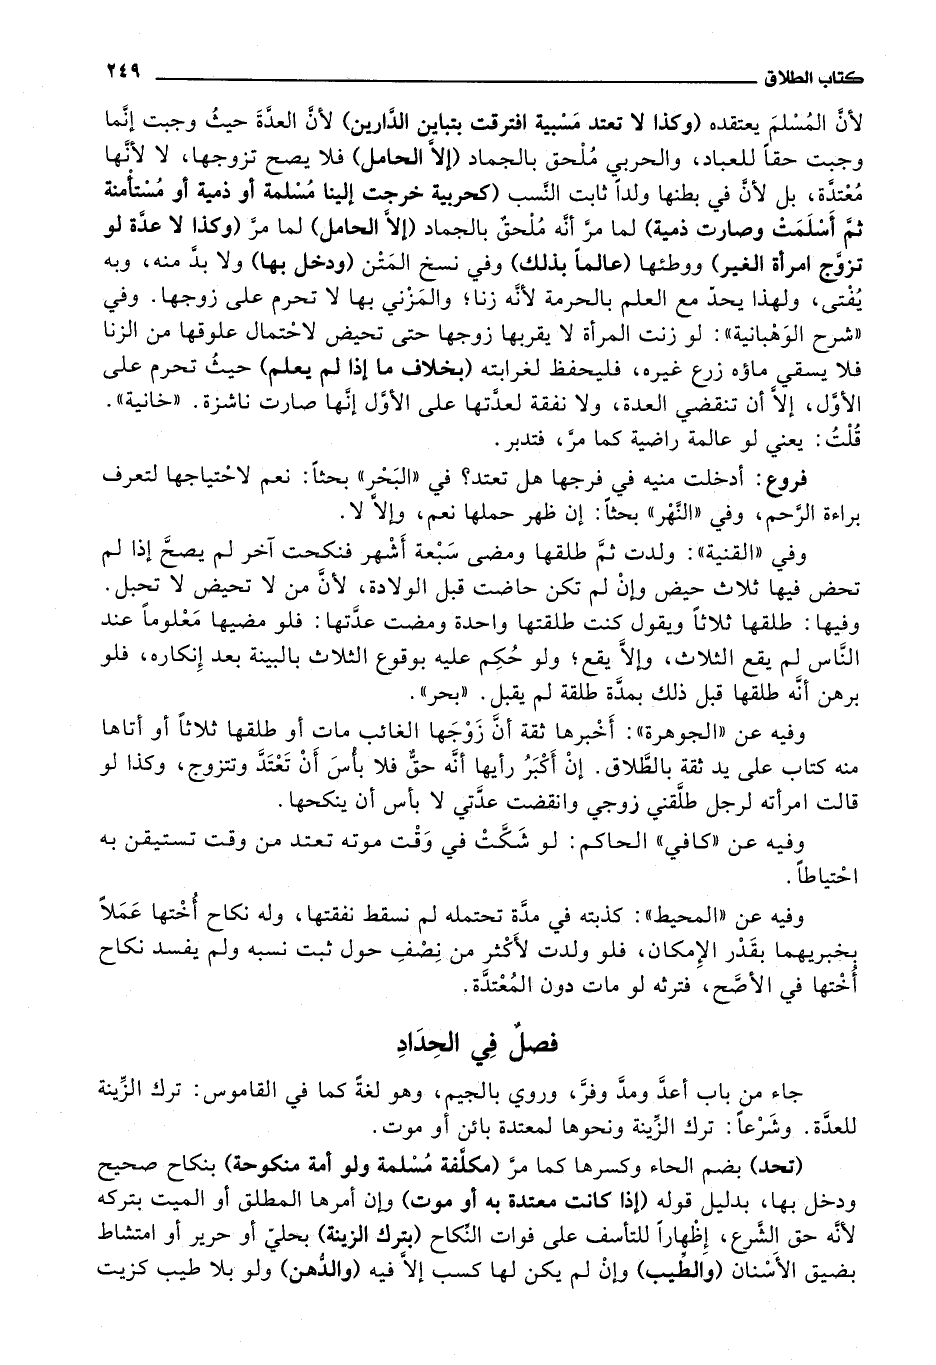 كتاب الطلاق ٢٤٩
لأنَّ المُسْلمَ يعتقده (وكذا لا تعتد مَسْبية افترقت بتباين الدَّارين) لأنَّ العدَّةَ حيثُ وجبت إنَّما
وجبت حقاً للعباد، والحربي مُلْحق بالجماد (إلاَّ الحامل) فلا يصح تزوجها، لا لأنَّها
مُعْتدَّة، بل لأنَّ في بطنها ولداً ثابت النَّسب (كحربية خرجت إلينا مُسْلمة أو ذمية أو مُسْتأمنة
ثمَّ أَسْلَمَتْ وصارت ذمية) لما مرَّ أنَّه مُلْحقٌ بالجماد (إلاَّ الحامل) لما مرَّ (وكذا لا عدَّة لو
تزوَّج امرأة الغير) ووطئها (عالماً بذلك) وفي نسخ المَتْن (ودخل بها) ولا بدَّ منه، وبه
يُفْتى، ولهذا يحدّ مع العلم بالحرمة لأنَّه زنا؛ والمَزْني بها لا تحرم على زوجها. وفي
«شرح الوَهْبانية»: لو زنت المرأة لا يقربها زوجها حتى تحيض لاحْتمال علوقها من الزنا
فلا يسقي ماؤه زرع غيره، فليحفظ لغرابته (بخلاف ما إذا لم يعلم) حيثُ تحرم على
الأوَّل، إلاَّ أن تنقضي العدة، ولا نفقة لعدَّتها على الأوَّل إنَّها صارت ناشزة. «خانية».
قُلْتُ: يعني لو عالمة راضية كما مرَّ، فتدبر.
فروع: أدخلت منيه في فرجها هل تعتد؟ في «البَحْر» بحثاً: نعم لاحْتياجها لتعرف
براءة الرَّحم، وفي «النَّهْر» بحثاً: إن ظهر حملها نعم، وإلاَّ لا.
وفي «القنية»: ولدت ثمَّ طلقها ومضى سَبْعة أَشْهر فنكحت آخر لم يصحَّ إذا لم
تحض فيها ثلاث حيض وإنْ لم تكن حاضت قبل الولادة، لأنَّ من لا تحيض لا تحبل.
وفيها: طلقها ثلاثاً ويقول كنت طلقتها واحدة ومضت عدَّتها: فلو مضيها مَعْلوماً عند
النَّاس لم يقع الثلاث، وإلاَّ يقع؛ ولو حُكِم عليه بوقوع الثلاث بالبينة بعد إنكاره، فلو
برهن أنَّه طلقها قبل ذلك بمدَّة طلقة لم يقبل. «بحر».
وفيه عن «الجوهرة»: أَخْبرها ثقة أنَّ زَوْجَها الغائب مات أو طلقها ثلاثاً أو أتاها
منه كتاب على يد ثقة بالطَّلاق. إنْ أَكْبَرُ رأيها أنَّه حقٌّ فلا بأسَ أَنْ تَعْتَدَّ وتتزوج، وكذا لو
قالت امرأته لرجل طلَّقني زوجي وانقضت عدَّتي لا بأس أن ينكحها.
وفيه عن «كافي» الحاكم: لو شَكَّتْ في وَقْت موته تعتد من وقت تستيقن به
احْتياطاً.
وفيه عن «المحيط»: كذبته في مدَّة تحتمله لم نسقط نفقتها، وله نكاح أُخْتها عَمَلاً
بخبريهما بقَدْر الإمكان، فلو ولدت لأَكْثر من نِصْفِ حول ثبت نسبه ولم يفسد نكاح
أُخْتها في الأصَّح، فترثه لو مات دون المُعْتدَّة.
فصلٌ فِي الحِدَادِ
جاء من باب أعدَّ ومدَّ وفرَّ، وروي بالجيم، وهو لغةً كما في القاموس: ترك الزِّينة
للعدَّة. وشَرْعاً: ترك الزِّينة ونحوها لمعتدة بائن أو موت.
(تحد) بضم الحاء وكسرها كما مرَّ (مكلَّفة مُسْلمة ولو أمة منكوحة) بنكاح صحيح
ودخل بها، بدليل قوله (إذا كانت معتدة به أو موت) وإن أمرها المطلق أو الميت بتركه
لأنَّه حق الشَّرع، إِظْهاراً للتأسف على فوات النِّكاح (بترك الزينة) بحليّ أو حرير أو امتشاط
بضيق الأَسْنان (والطِّيب) وإنْ لم يكن لها كسب إلاَّ فيه (والدُّهن) ولو بلا طيب كزيت